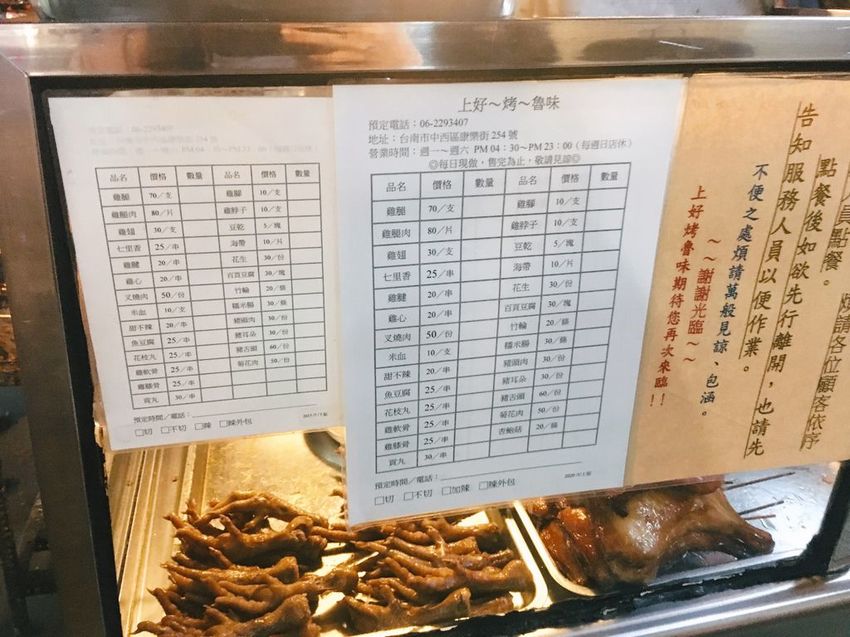 預定電話：06-2293407
品名 價格 數量 品名 價格 數量
雞腿 70／支 雞腳 10／支
雞腿肉 80／片 雞脖子 10／支
雞翅 30／支 豆乾 5／塊
七里香 25／串 海帶 10／片
雞腱 20／串 花生 30／份
雞心 20／串 百頁豆腐 30／塊
叉燒肉 50／份 竹輪 20／條
米血 10／支 糯米腸 30／條
甜不辣 20／串 豬頭肉 30／份
魚豆腐 25／串 豬耳朵 30／份
花枝丸 25／串 豬舌頭 60／份
雞軟骨 25／串 菊花肉 50／份
雞膝骨 25／串
貢丸 30／串
預定時間／電話：
□切 □不切 □辣 □辣外包
上好～烤～魯味
預定電話：06-2293407
地址：台南市中西區康樂街 254 號
營業時間：週一～週六 PM 04：30～PM 23：00（每週日店休）
◎每日現做，售完為止，敬請見諒◎
品名 價格 數量 品名 價格 數量
雞腿 70／支 雞腳 10／支
雞腿肉 80／片 雞脖子 10／支
雞翅 30／支 豆乾 5／塊
七里香 25／串 海帶 10／片
雞腱 20／串 花生 30／份
雞心 20／串 百頁豆腐 30／塊
叉燒肉 50／份 竹輪 20／條
米血 10／支 糯米腸 30／條
甜不辣 20／串 豬頭肉 30／份
魚豆腐 25／串 豬耳朵 30／份
花枝丸 25／串 豬舌頭 60／份
雞軟骨 25／串 菊花肉 50／份
雞膝骨 25／串 杏鮑菇 20／條
貢丸 30／串
預定時間／電話：
□切 □不切 □加辣 □辣外包
員點餐。 煩請各位顧客依序
點餐後如欲先行離開，也請先
告知服務人員以便作業。
不便之處煩請萬般見諒、包涵。
～～謝謝光臨～～
上好烤魯味期待您再次來臨！！